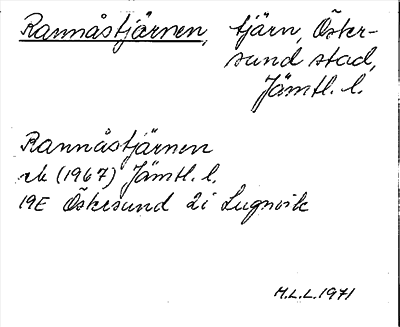 Rannåstjärnen, tjärn, Öster-
sund stad,
Jämtl. l.
Rannåstjärnen
ek (1967) Jämtl. l.
19E Östersund 2i Lugnvik
M.L.L. 1971